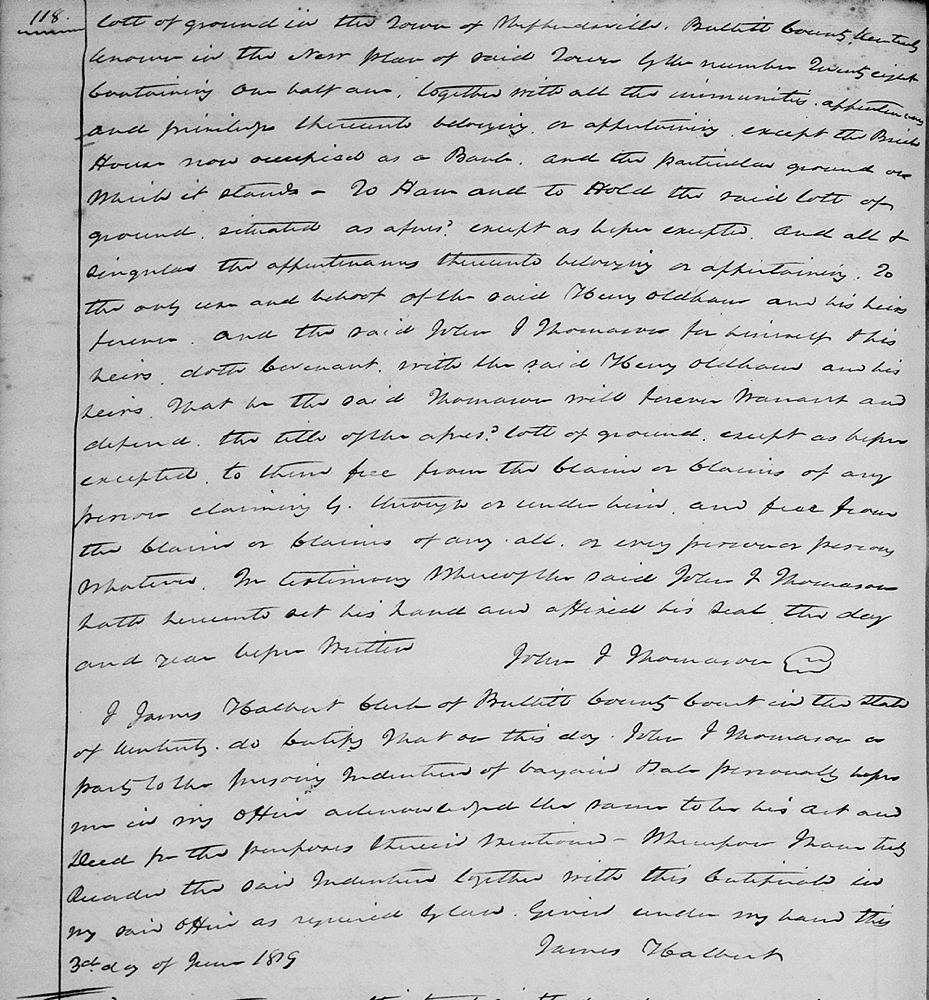 118.
lott of ground in the Town of Shepherdsville, Bullitt County, Kentucky
known in the New plan of said Town by the number Twenty eight
Containing One half acre, together with all the immunities, appurtenances
and priviledges thereunto belonging or appertaining, except the Brick
House now occupied as a Bank, and the particular ground on
Which it stands - To Have and to Hold the said lott of
ground, situated as afores? except as before excepted, and all &
singular the appurtenances thereunto belonging or appertaining, To
the only use and behoof of the said Henry Oldham and his heirs
forever, and the said John J Thomason for himself & his
heirs, doth Covenant, with the said Henry Oldham and his
heirs, That he the said Thomason will forever Warrant and
defend, the title of the afores? lott of ground, except as before
excepted, to them free from the Claim or Claims of any
person claiming by, through or under him, and free from
the Claim or Claims of any, all, or every person or persons
Whatever. In testimony Whereof the said John J Thomason
hath hereunto set his hand and affixed his seal, the day
and year before Written
John J Thomason
I James Halbert Clerk of Bullitt County Court in the State
of Kentucky, do Certify That on this day, John J Thomason a
party to the foregoing Indenture of bargain Sale personally before
me in my Office acknowledged the same to be his Act and
Deed for the purposes therein Mentioned - Whereupon I have truly
Recorded the said Indenture together with this Certificate in
my said Office as required by law. Given under my hand this
3d day of June 1819
James Halbert